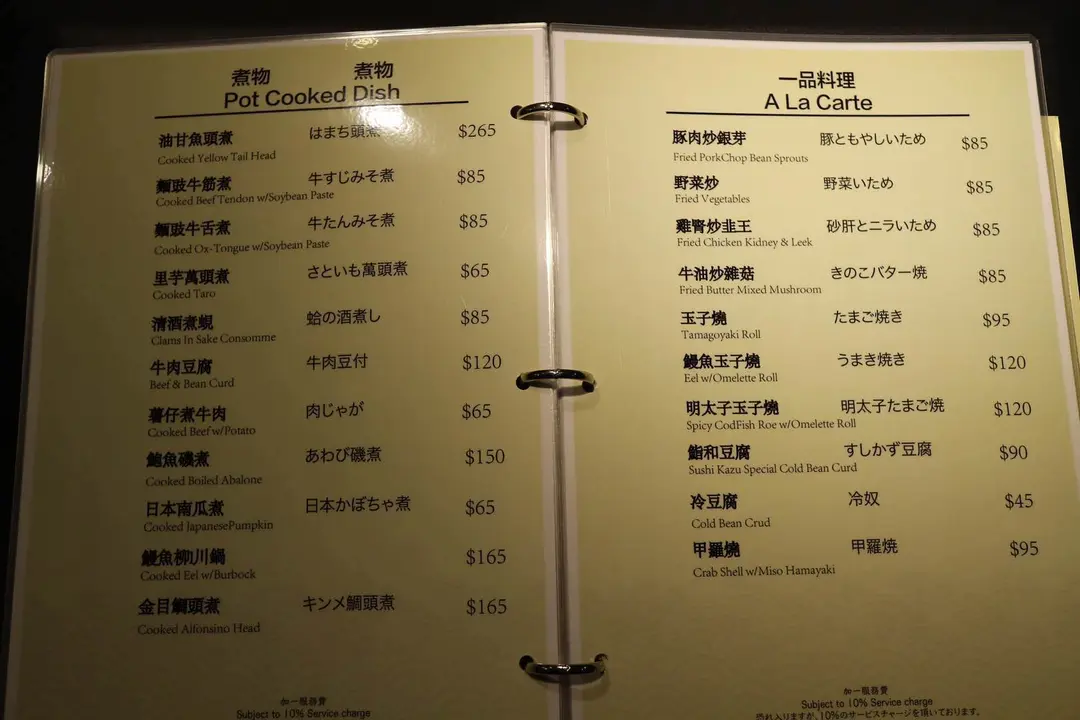 煮物 煮物
Pot Cooked Dish
油甘魚頭煮 はまち頭煮 $265
Cooked Yellow Tail Head
麵豉牛筋煮 牛すじみそ煮 $85
Cooked Beef Tendon w/Soybean Paste
麵豉牛舌煮 牛たんみそ煮 $85
Cooked Ox-Tongue w/Soybean Paste
里芋萬頭煮 さといも萬頭煮 $65
Cooked Taro
清酒煮蜆 蛤の酒煮し $85
Clams In Sake Consomme
牛肉豆腐 牛肉豆付 $120
Beef & Bean Curd
薯仔煮牛肉 肉じゃが $65
Cooked Beef w/Potato
鮑魚磯煮 あわび磯煮 $150
Cooked Boiled Abalone
日本南瓜煮 日本かぼちゃ煮 $65
Cooked JapanesePumpkin
鰻魚柳川鍋 $165
Cooked Eel w/Burbock
金目鯛頭煮 キンメ鯛頭煮 $165
Cooked Alfonsino Head
加一服務費
Subject to 10% Service charge
一品料理
A La Carte
豚肉炒銀芽 豚ともやしいため $85
Fried PorkChop Bean Sprouts
野菜炒 野菜いため $85
Fried Vegetables
雞腎炒韭王 砂肝とニラいため $85
Fried Chicken Kidney & Leek
牛油炒雜菇 きのこバター焼 $85
Fried Butter Mixed Mushroom
玉子燒 たまご焼き $95
Tamagoyaki Roll
鰻魚玉子燒 うまき焼き $120
Eel w/Omelette Roll
明太子玉子燒 明太子たまご焼 $120
Spicy CodFish Roe w/Omelette Roll
鮨和豆腐 すしかず豆腐 $90
Sushi Kazu Special Cold Bean Curd
冷豆腐 冷奴 $45
Cold Bean Crud
甲羅燒 甲羅焼 $95
Crab Shell w/Miso Hamayaki
加一服務費
Subject to 10% Service charge
恐れ入りますが、10%のサービスチャージを頂いております。